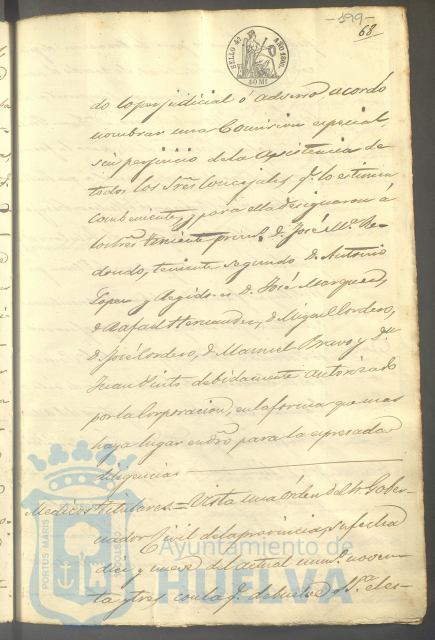 -199-
68
SELLO 4º AÑO 1860.
40 Ms
do lo perjudicial ó adverso acordó
nombrar una Comision especial,
sin perjuicio de la asistencia de
todos los Sres Concejales qe lo estimen
combeniente, y para ella designaron á
los Sres teniente primº D. José Mª Re-
dondo, teniente segundo D. Antonio
Lopez y Regidores D. José Marquez,
D. Rafael Hernandez, D. Miguel Cordero,
D. José Cordero, D. Manuel Bravo y Dn
Juan Pinto debidamente autorizado
por la Corporacion, en la forma que mas
haya lugar en dro para la espresada
diligencia
Medicos titulares = Vista una órden del Sr Gober-
nador Civil de la provincia su fecha
diez y nueve del actual numº noven-
ta y tres con la qe debuelve el
Ayuntamiento de
HUELVA
PORTUS MARIS
CUSTODIA